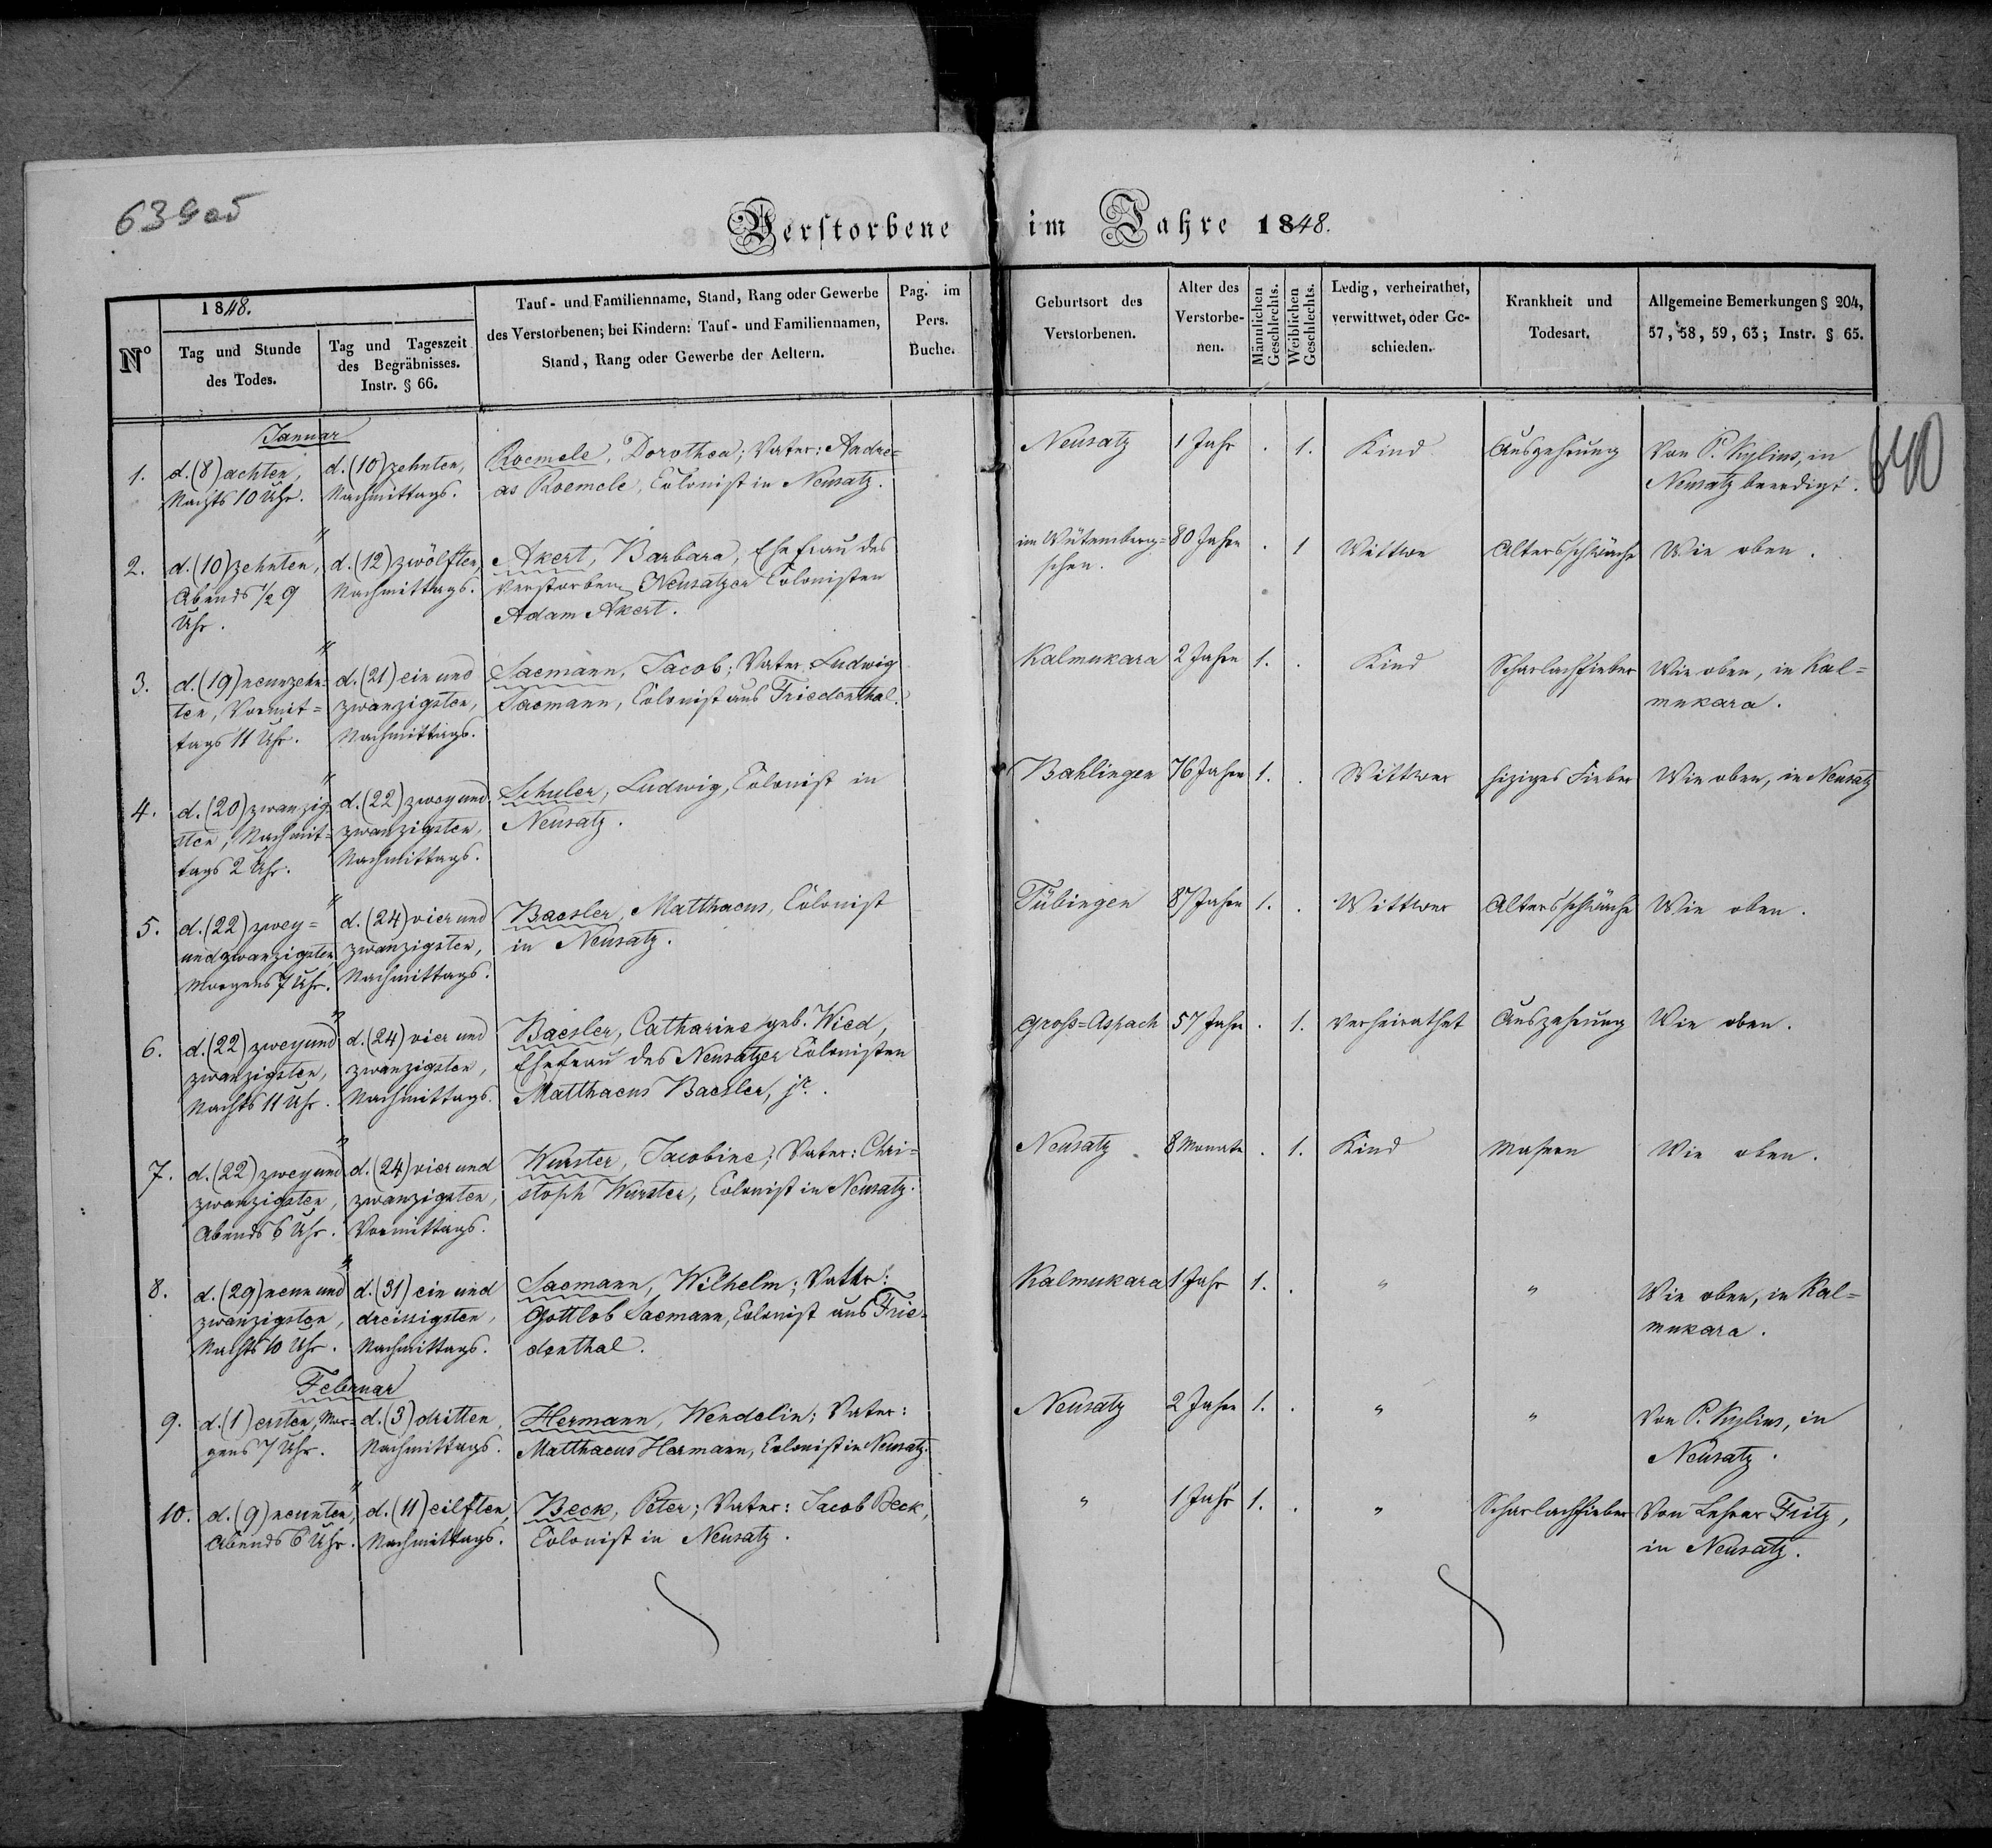 639об
Verstorbene im Jahre 1848.
1848.
N°
Tag und Stunde des Todes.
Tag und Tageszeit des Begräbnisses. Instr. § 66.
Tauf- und Familienname, Stand, Rang oder Gewerbe
des Verstorbenen; bei Kindern: Tauf- und Familiennamen,
Stand, Rang oder Gewerbe der Aeltern.
Pag. im Pers. Buche.
Geburtsort des Verstorbenen.
Alter des Verstorbe-nen.
Männlichen Geschlechts.
Weiblichen Geschlechts.
Ledig, verheirathet, verwittwet, oder Ge-schieden.
Krankheit und Todesart.
Allgemeine Bemerkungen § 204, 57, 58, 59, 63; Instr. § 65.
640
Januar
1. d. (8) achten, d. (10) zehnten, Roemele, Dorothea; Vater: Andre= Neusatz 1 Jahr . 1. Kind Auszehrung Von P. Kylius, in
Nachts 10 Uhr. Nachmittags. as Roemele, Colonist in Neusatz. Neusatz beerdigt.
"
2. d. (10) zehnten, d. (12) zwölften, Akert, Barbara, Ehefrau des im Würtemberg= 80 Jahre . 1 Wittwe Altersschwäche Wie oben.
Abends ½ 9 Nachmittags. verstorbenen Neusatzer Colonisten schen.
Uhr. Adam Akert.
"
3. d. (19) neunzehn= d. (21) ein und Sacmann, Jacob; Vater Ludwig Kalmukara 2 Jahre 1. . Kind Scharlachfieber Wie oben, in Kal=
ten, Vormit= zwanzigsten, Sacmann, Colonist aus Friedenthal. mukara.
tags 11 Uhr. Nachmittags.
"
4. d. (20) zwanzig d. (22) zwey und Schuler, Ludwig, Colonist in Bahlingen 76 Jahre 1. . Wittwer hiziges Fieber Wie oben, in Neusatz
sten, Nachmit= zwanzigsten, Neusatz.
tags 2 Uhr. Nachmittags.
"
5. d. (22) zwey= d. (24) vier und Baesler, Matthaeus, Colonist Tübingen 87 Jahre 1. . Wittwer Altersschwäche Wie oben.
und zwanzigsten zwanzigsten, in Neusatz.
Morgens 7 Uhr. Nachmittags.
"
6. d. (22) zwey und d. (24) vier und Baesler, Catharine geb. Wied, Groß=Aspach 57 Jahre . 1. verheirathet Auszehrung Wie oben.
zwanzigsten, zwanzigsten, Ehefrau des Neusatzer Colonisten
Nachts 11 Uhr. Nachmittags. Matthaeus Baesler, jr.
"
7. d. (22) zwey und d. (24) vier und Wurster, Jacobine; Vater: Chri= Neusatz 8 Monate . 1. Kind Masern Wie oben.
zwanzigsten, zwanzigsten, stoph Wurster, Colonist in Neusatz.
Abends 6 Uhr. Vormittags.
"
8. d. (29) neun und d. (31) ein und Sacmann, Wilhelm; Vater: Kalmukara 1 Jahr 1. . " " Wie oben, in Kal=
zwanzigsten, dreissigsten, Gottlob Sacmann, Colonist aus Frie= mukara.
Nachts 10 Uhr. Nachmittags. denthal.
Februar
9. d. (1) ersten, Mor= d. (3) dritten, Hermann, Wendelin; Vater: Neusatz 2 Jahre 1. . " " Von P. Kylius, in
gens 7 Uhr. Nachmittags. Matthaeus Hermann, Colonist in Neusatz. Neusatz.
"
10. d. (9) neunten, d. (11) eilften, Beck, Peter; Vater: Jacob Beck, " 1 Jahr 1. . " Scharlachfieber Von Lehrer Fritz,
Abends 6 Uhr. Nachmittags. Colonist in Neusatz. in Neusatz.